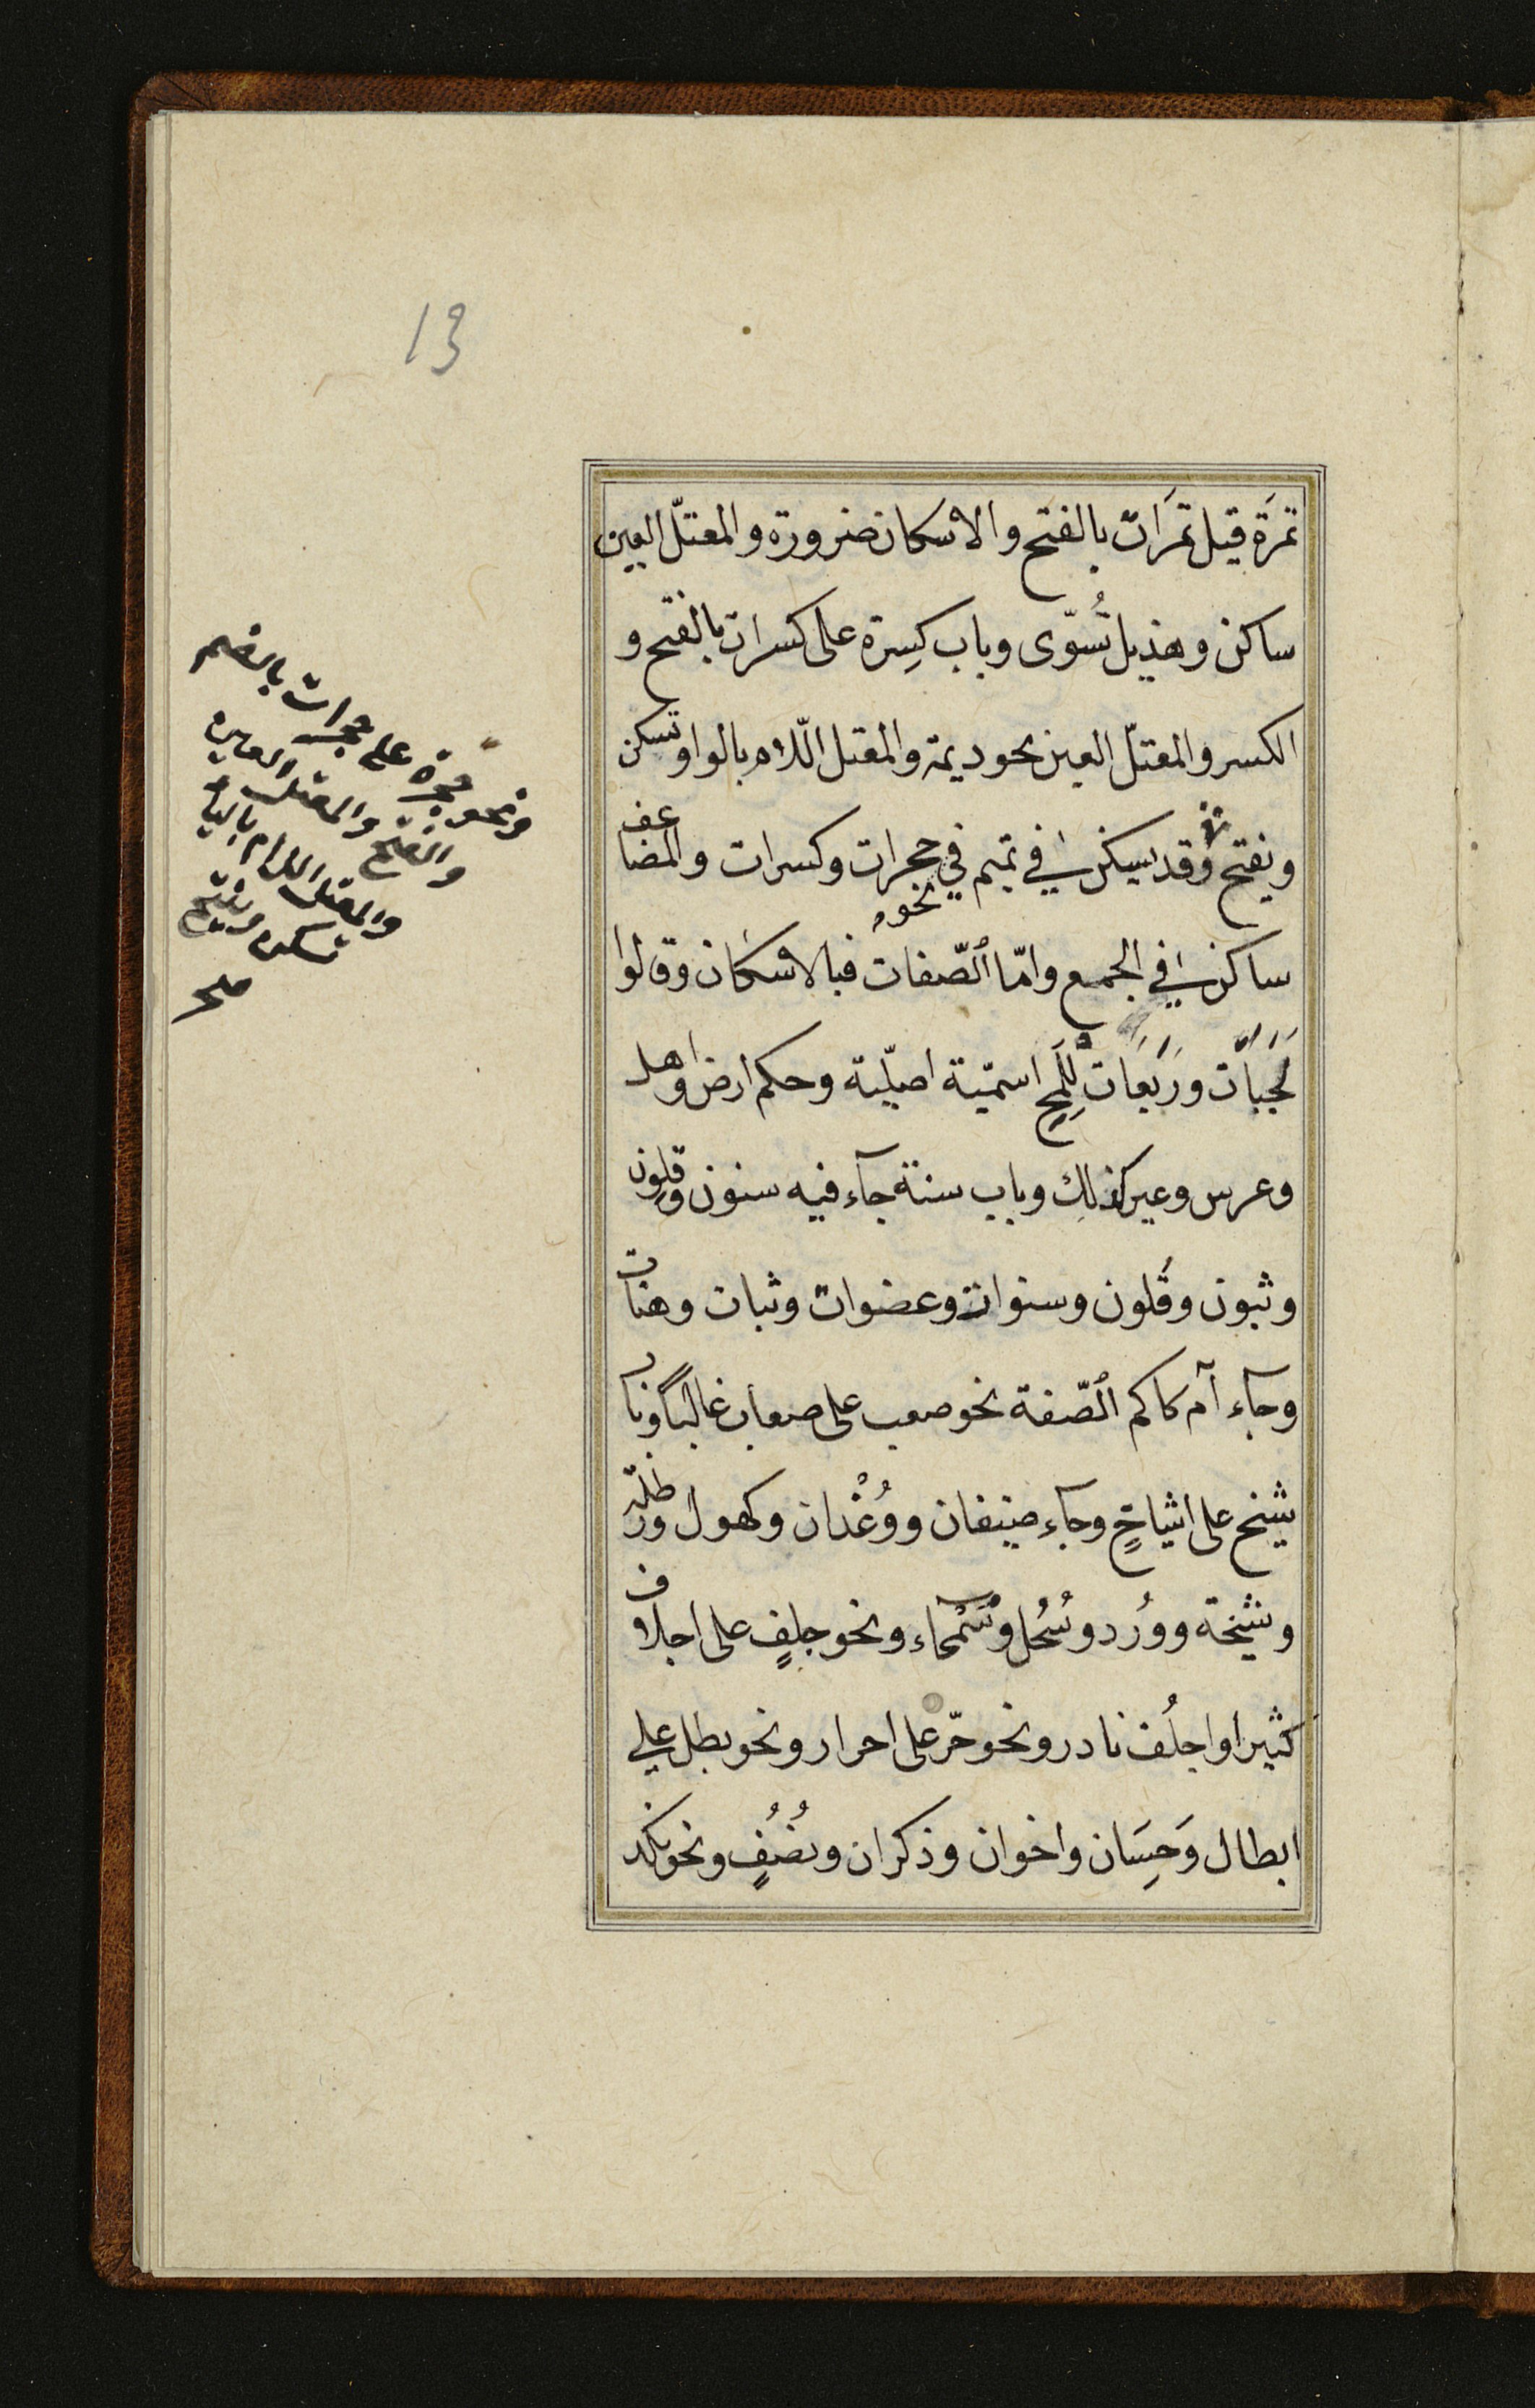 13
تمرَة قيل تمرَات بالفتح والاسكان ضرورة والمعتلّ العين
ساكن وهذيل تُسوّى وباب كِسرة على كسرات بالفتح و
الكسر والمعتلّ العين نحو ديمة والمعتل اللّام بالواو تسكن
ويفتح وقد يسكن في تميم في حجرات وكسرات والمضاعف
نحوه
ساكن في الجمع وامّا الصّفات فبالاسكان وقالوا
لَجَبَات ورَبَعَات لِلَمحِ اسميّة اصليّة وحكم ارض واهل
وعرس وعير كذلك وباب سنة جآء فيه سنون وقِلون
وثبون وقُلون وسنوات وعضوات وثبات وهنات
وجآء آم كاكم الصّفة نحو صعب على صعاب غالبًا وباب
شيخ على اشياخٍ وجآء ضيفان ووُغْدان وكهول ورطلة
وشيخة ووُرد وسُحُل وسُمحاء ونحو جلفٍ على اجلاف
كثيرا واجلُف نادر ونحو حرّ على احرار ونحو بطل على
ابطال وَحِسَان واخوان وذكران ونُصُفٍ ونحو نكد
ونحو حجرة على حجرات بالضم
والفتح والمعتل العين
والمعتل اللام بالياء
تسكن ويفتح
صح